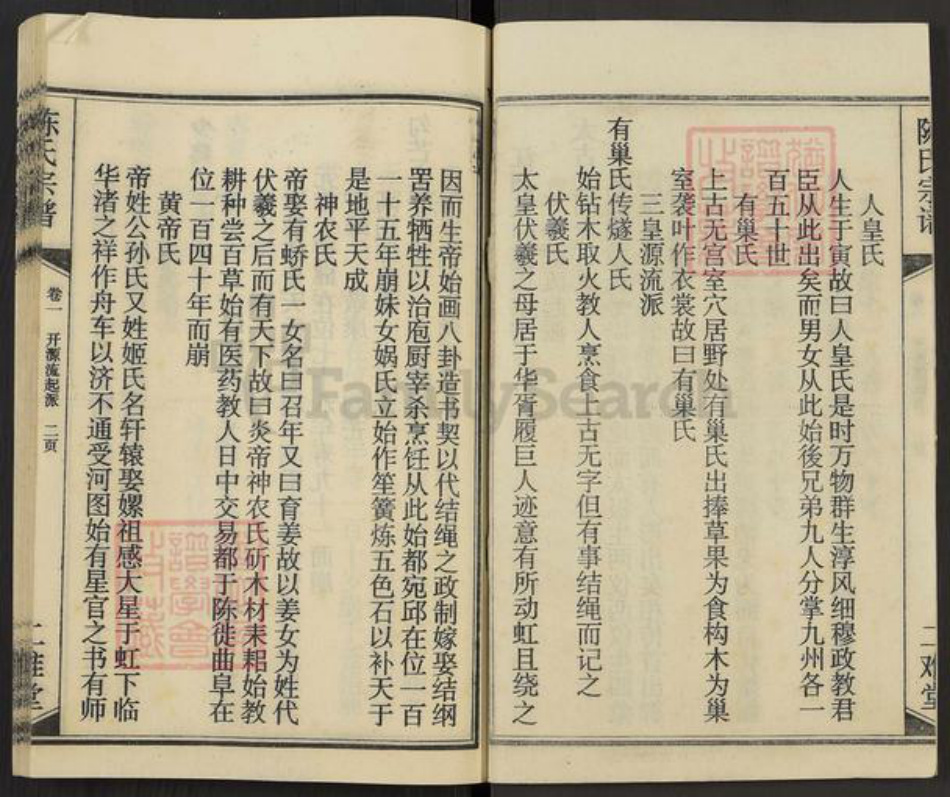 人皇氏
人生于寅故曰人皇氏是时万物群生淳风细穆政教君
臣从此出矣而男女从此始後兄弟九人分掌九州各一
百五十世
有巢氏
上古无宫室穴居野处有巢氏出捧草果为食构木为巢
室袭叶作衣裳故曰有巢氏
三皇源流派
有巢氏传燧人氏
始钻木取火教人烹食上古无字但有事结绳而记之
伏羲氏
太皇伏羲之母居于华胥履巨人迹意有所动虹且绕之
因而生帝始画八卦造书契以代结绳之政制嫁娶结纲
罟养牺牲以治庖厨宰杀烹饪从此始都宛邱在位一百
一十五年崩妹女娲氏立始作笙簧炼五色石以补天于
是地平天成
神农氏
帝娶有蟜氏一女名曰召年又曰育姜故以姜女为姓代
伏羲之后而有天下故曰炎帝神农氏斫木材耒耜始教
耕种尝百草始有医药教人日中交易都于陈徙曲阜在
位一百四十年而崩
黄帝氏
帝姓公孙氏又姓姬氏名轩辕娶嫘祖感大星于虹下临
华渚之祥作舟车以济不通受河图始有星官之书有师
陈氏宗谱
卷一 开源流起派 二页
二难堂
FamilySearch